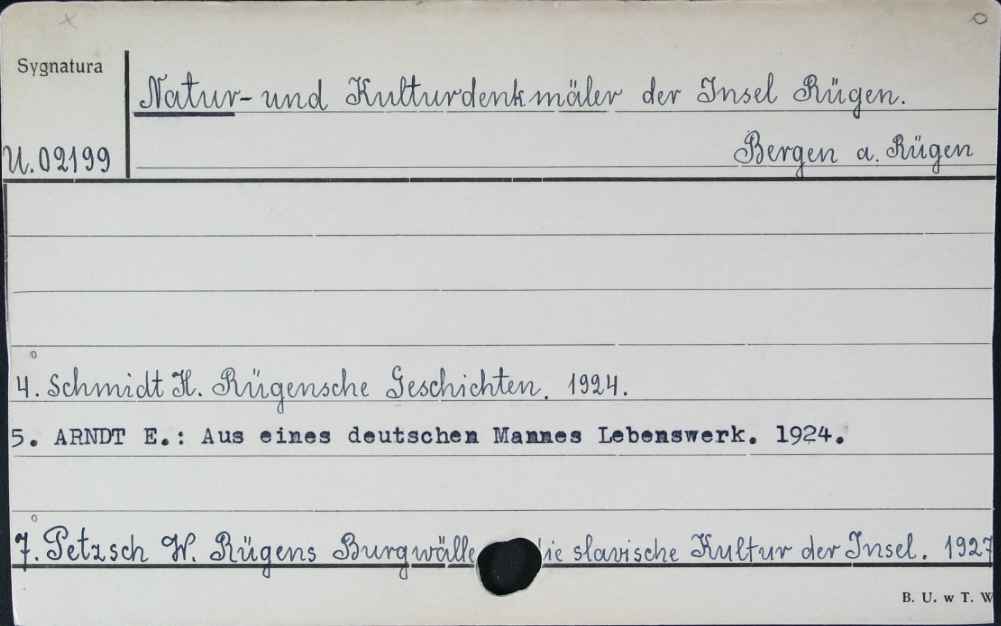 Sygnatura
Natur- und Kulturdenkmäler der Insel Rügen.
U. 02199
Bergen a. Rügen
4. Schmidt H. Rügensche Geschichten. 1924.
5. ARNDT E.: Aus eines deutschen Mannes Lebenswerk. 1924.
7. Petzsch W. Rügens Burgwälle die slavische Kultur der Insel. 1927
B. U. w T. W